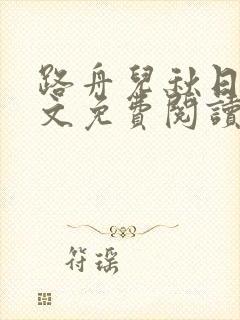 路舟兒秋日
文免費閱讀
符瑶